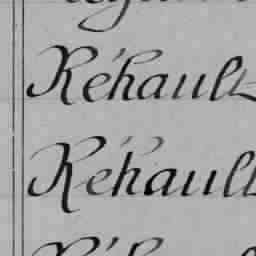 Réhault
Réhault